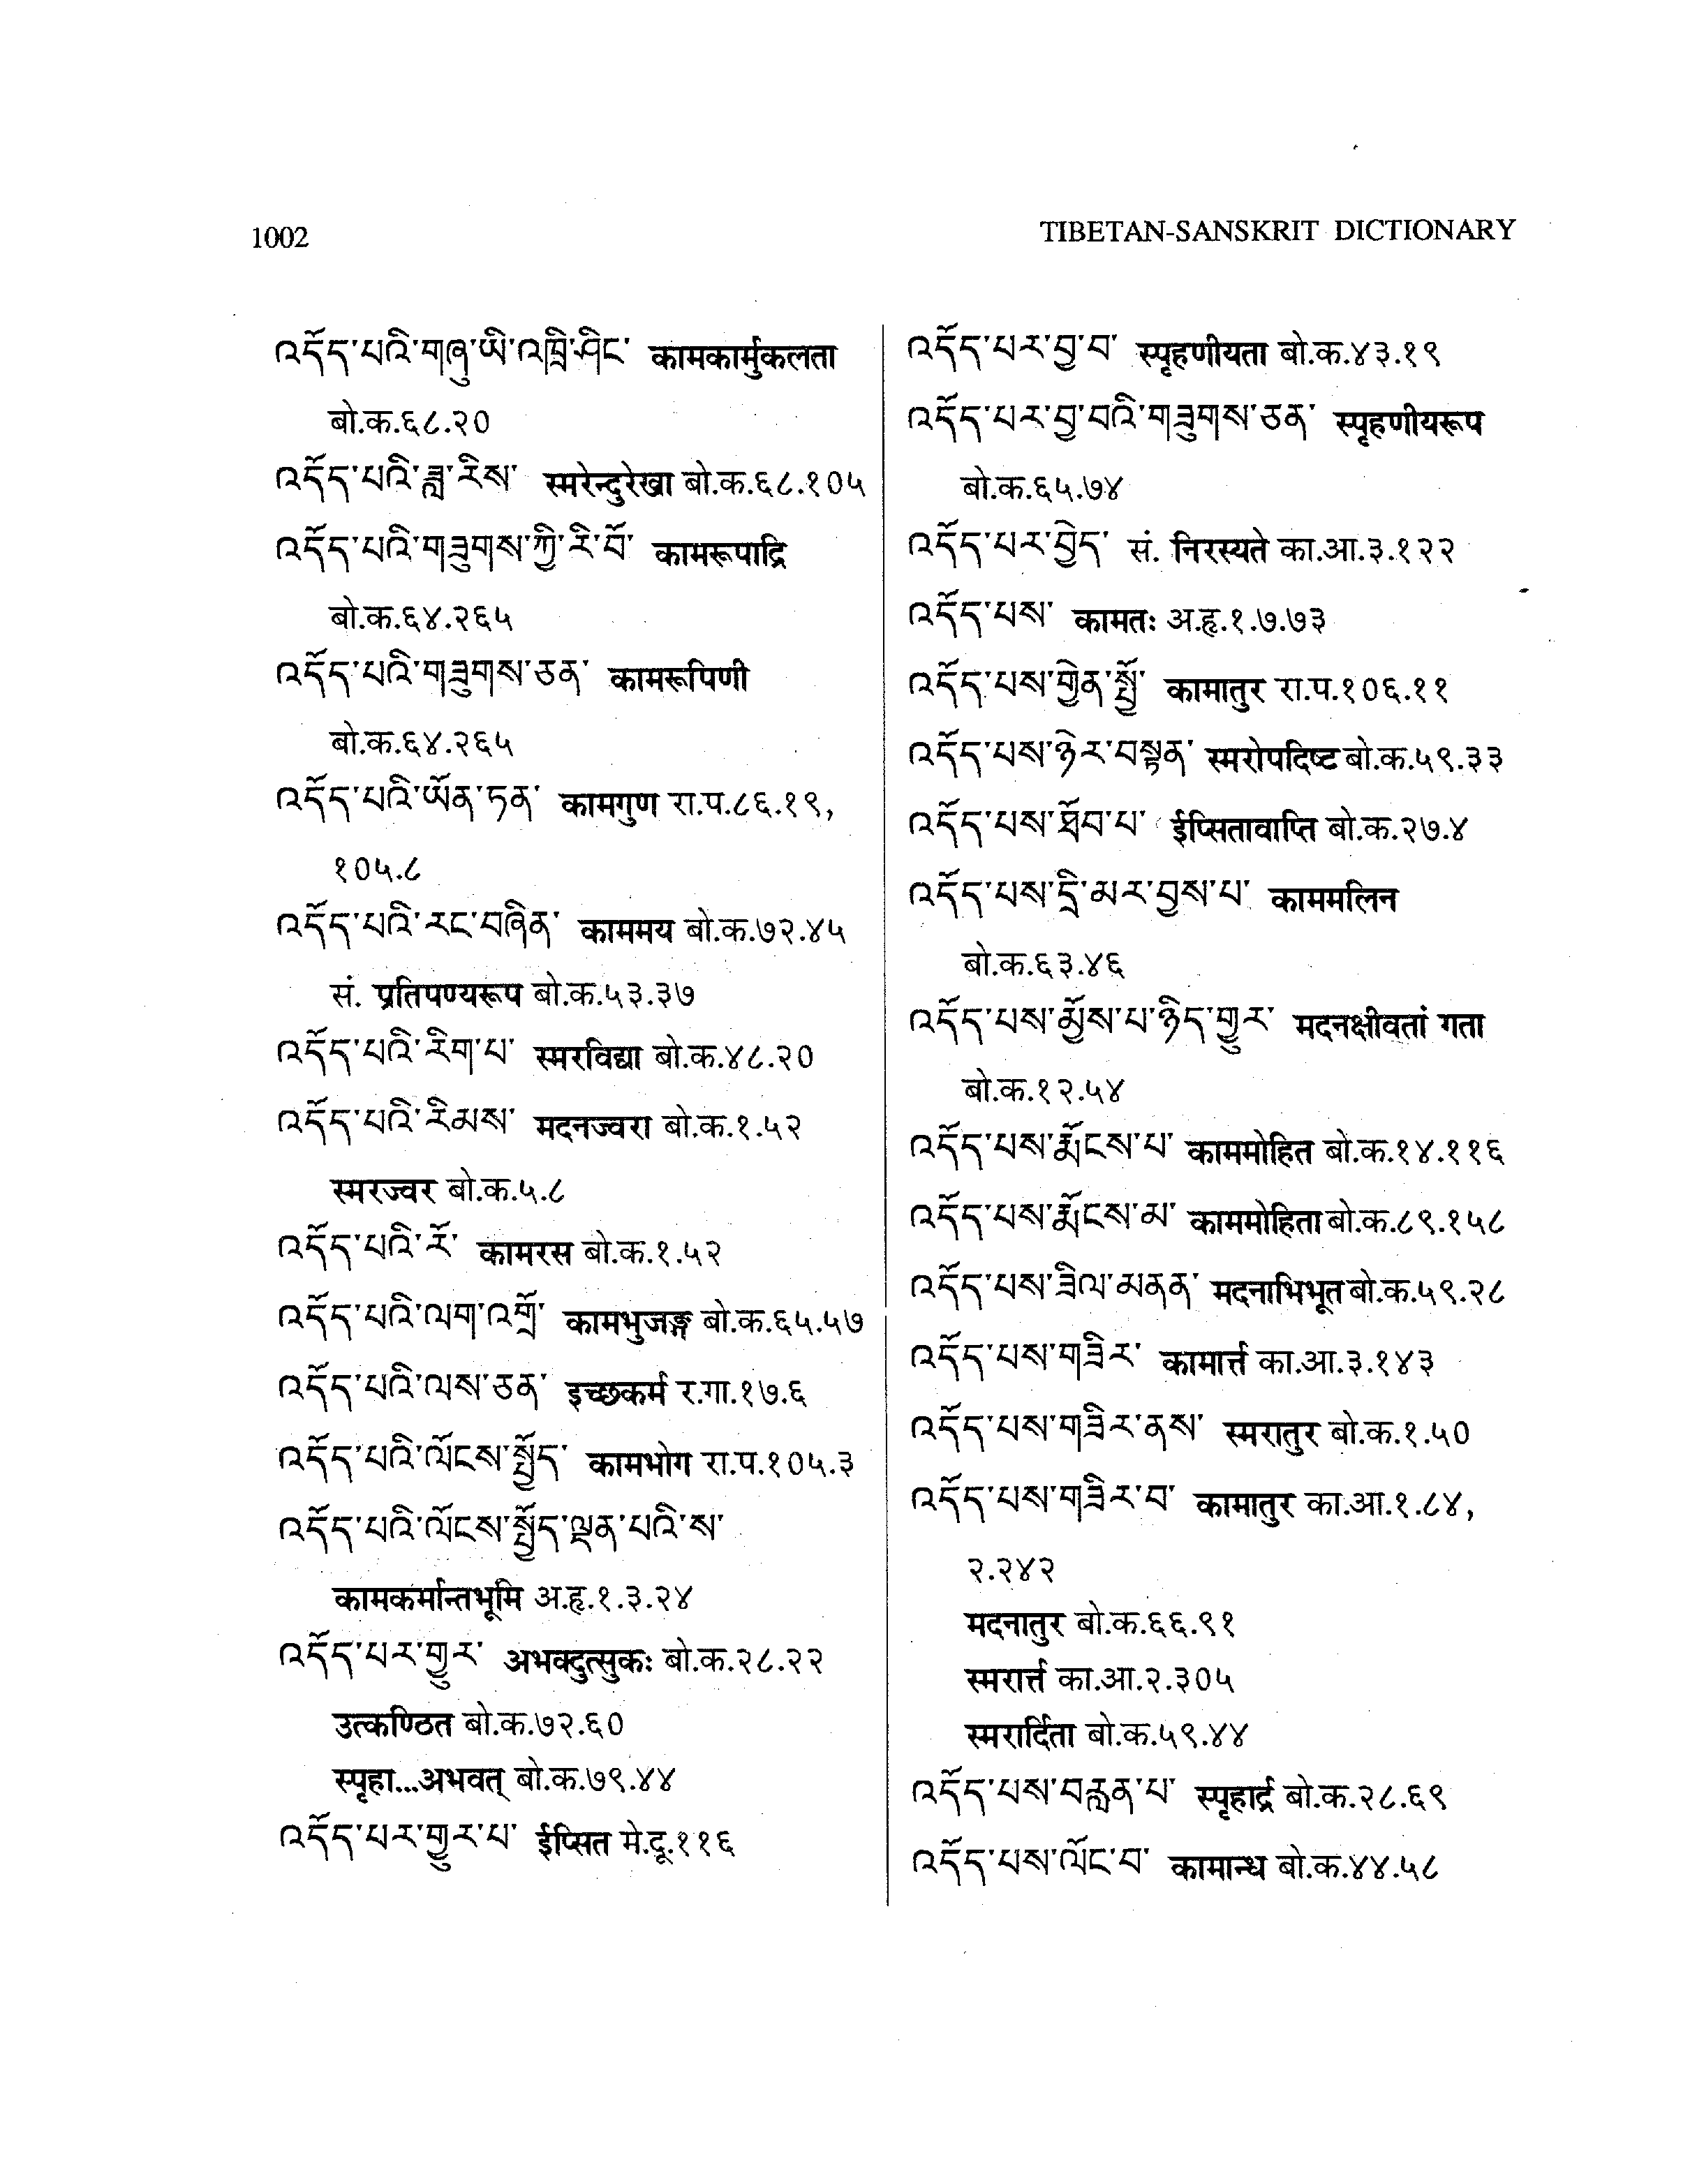 1002
TIBETAN-SANSKRIT DICTIONARY
འདོད་པའི་གཞུ་ཡི་འཁྲི་ཤིང་ कामकार्मुकलता
बो.क.६८.२०
འདོད་པའི་ཟླ་རིས་ स्मरेन्दुरेखा बो.क.६८.१०५
འདོད་པའི་གཟུགས་ཀྱི་རི་བོ་ कामरूपाद्रि
बो.क.६४.२६५
འདོད་པའི་གཟུགས་ཅན་ कामरूपिणी
बो.क.६४.२६५
འདོད་པའི་ཡོན་ཏན་ कामगुण रा.प.८६.१९,
१०५.८
འདོད་པའི་རང་བཞིན་ काममय बो.क.७२.४५
सं. प्रतिपण्यरूप बो.क.५३.३७
འདོད་པའི་རིག་པ་ स्मरविद्या बो.क.४८.२०
འདོད་པའི་རིམས་ मदनज्वरा बो.क.१.५२
स्मरज्वर बो.क.५.८
འདོད་པའི་རོ་ कामरस बो.क.१.५२
འདོད་པའི་ལག་འགྲོ་ कामभुजङ्ग बो.क.६५.५७
འདོད་པའི་ལས་ཅན་ इच्छकर्म र.गा.१७.६
འདོད་པའི་ལོངས་སྤྱོད་ कामभोग रा.प.१०५.३
འདོད་པའི་ལོངས་སྤྱོད་ལྡན་པའི་ས་
कामकर्मान्तभूमि अ.हृ.१.३.२४
འདོད་པར་གྱུར་ अभवदुत्सुकः बो.क.२८.२२
उत्कण्ठित बो.क.७२.६०
स्पृहा...अभवत् बो.क.७९.४४
འདོད་པར་གྱུར་པ་ ईप्सित मे.दू.११६
འདོད་པར་བྱ་བ་ स्पृहणीयता बो.क.४३.१९
འདོད་པར་བྱ་བའི་གཟུགས་ཅན་ स्पृहणीयरूप
बो.क.६५.७४
འདོད་པར་བྱེད་ सं. निरस्यते का.आ.३.१२२
འདོད་པས་ कामतः अ.हृ.१.७.७३
འདོད་པས་གྱེན་སྤྱོ་ कामातुर रा.प.१०६.११
འདོད་པས་ཉེར་བསྟན་ स्मरोपदिष्ट बो.क.५९.३३
འདོད་པས་ཐོབ་པ་ ईप्सितावाप्ति बो.क.२७.४
འདོད་པས་དྲི་མར་བྱས་པ་ काममलिन
बो.क.६३.४६
འདོད་པས་མྱོས་པ་ཉིད་གྱུར་ मदनक्षीवतां गता
बो.क.१२.५४
འདོད་པས་རྨོངས་པ་ काममोहित बो.क.१४.११६
འདོད་པས་རྨོངས་མ་ काममोहिता बो.क.८९.१५८
འདོད་པས་ཟིལ་མནན་ मदनाभिभूत बो.क.५९.२८
འདོད་པས་གཟིར་ कामार्त्त का.आ.३.१४३
འདོད་པས་གཟིར་ནས་ स्मरातुर बो.क.१.५०
འདོད་པས་གཟིར་བ་ कामातुर का.आ.१.८४,
२.२४२
मदनातुर बो.क.६६.९१
स्मरार्त्त का.आ.२.३०५
स्मरार्दिता बो.क.५९.४४
འདོད་པས་བརླན་པ་ स्पृहार्द्र बो.क.२८.६९
འདོད་པས་ལོང་བ་ कामान्ध बो.क.४४.५८